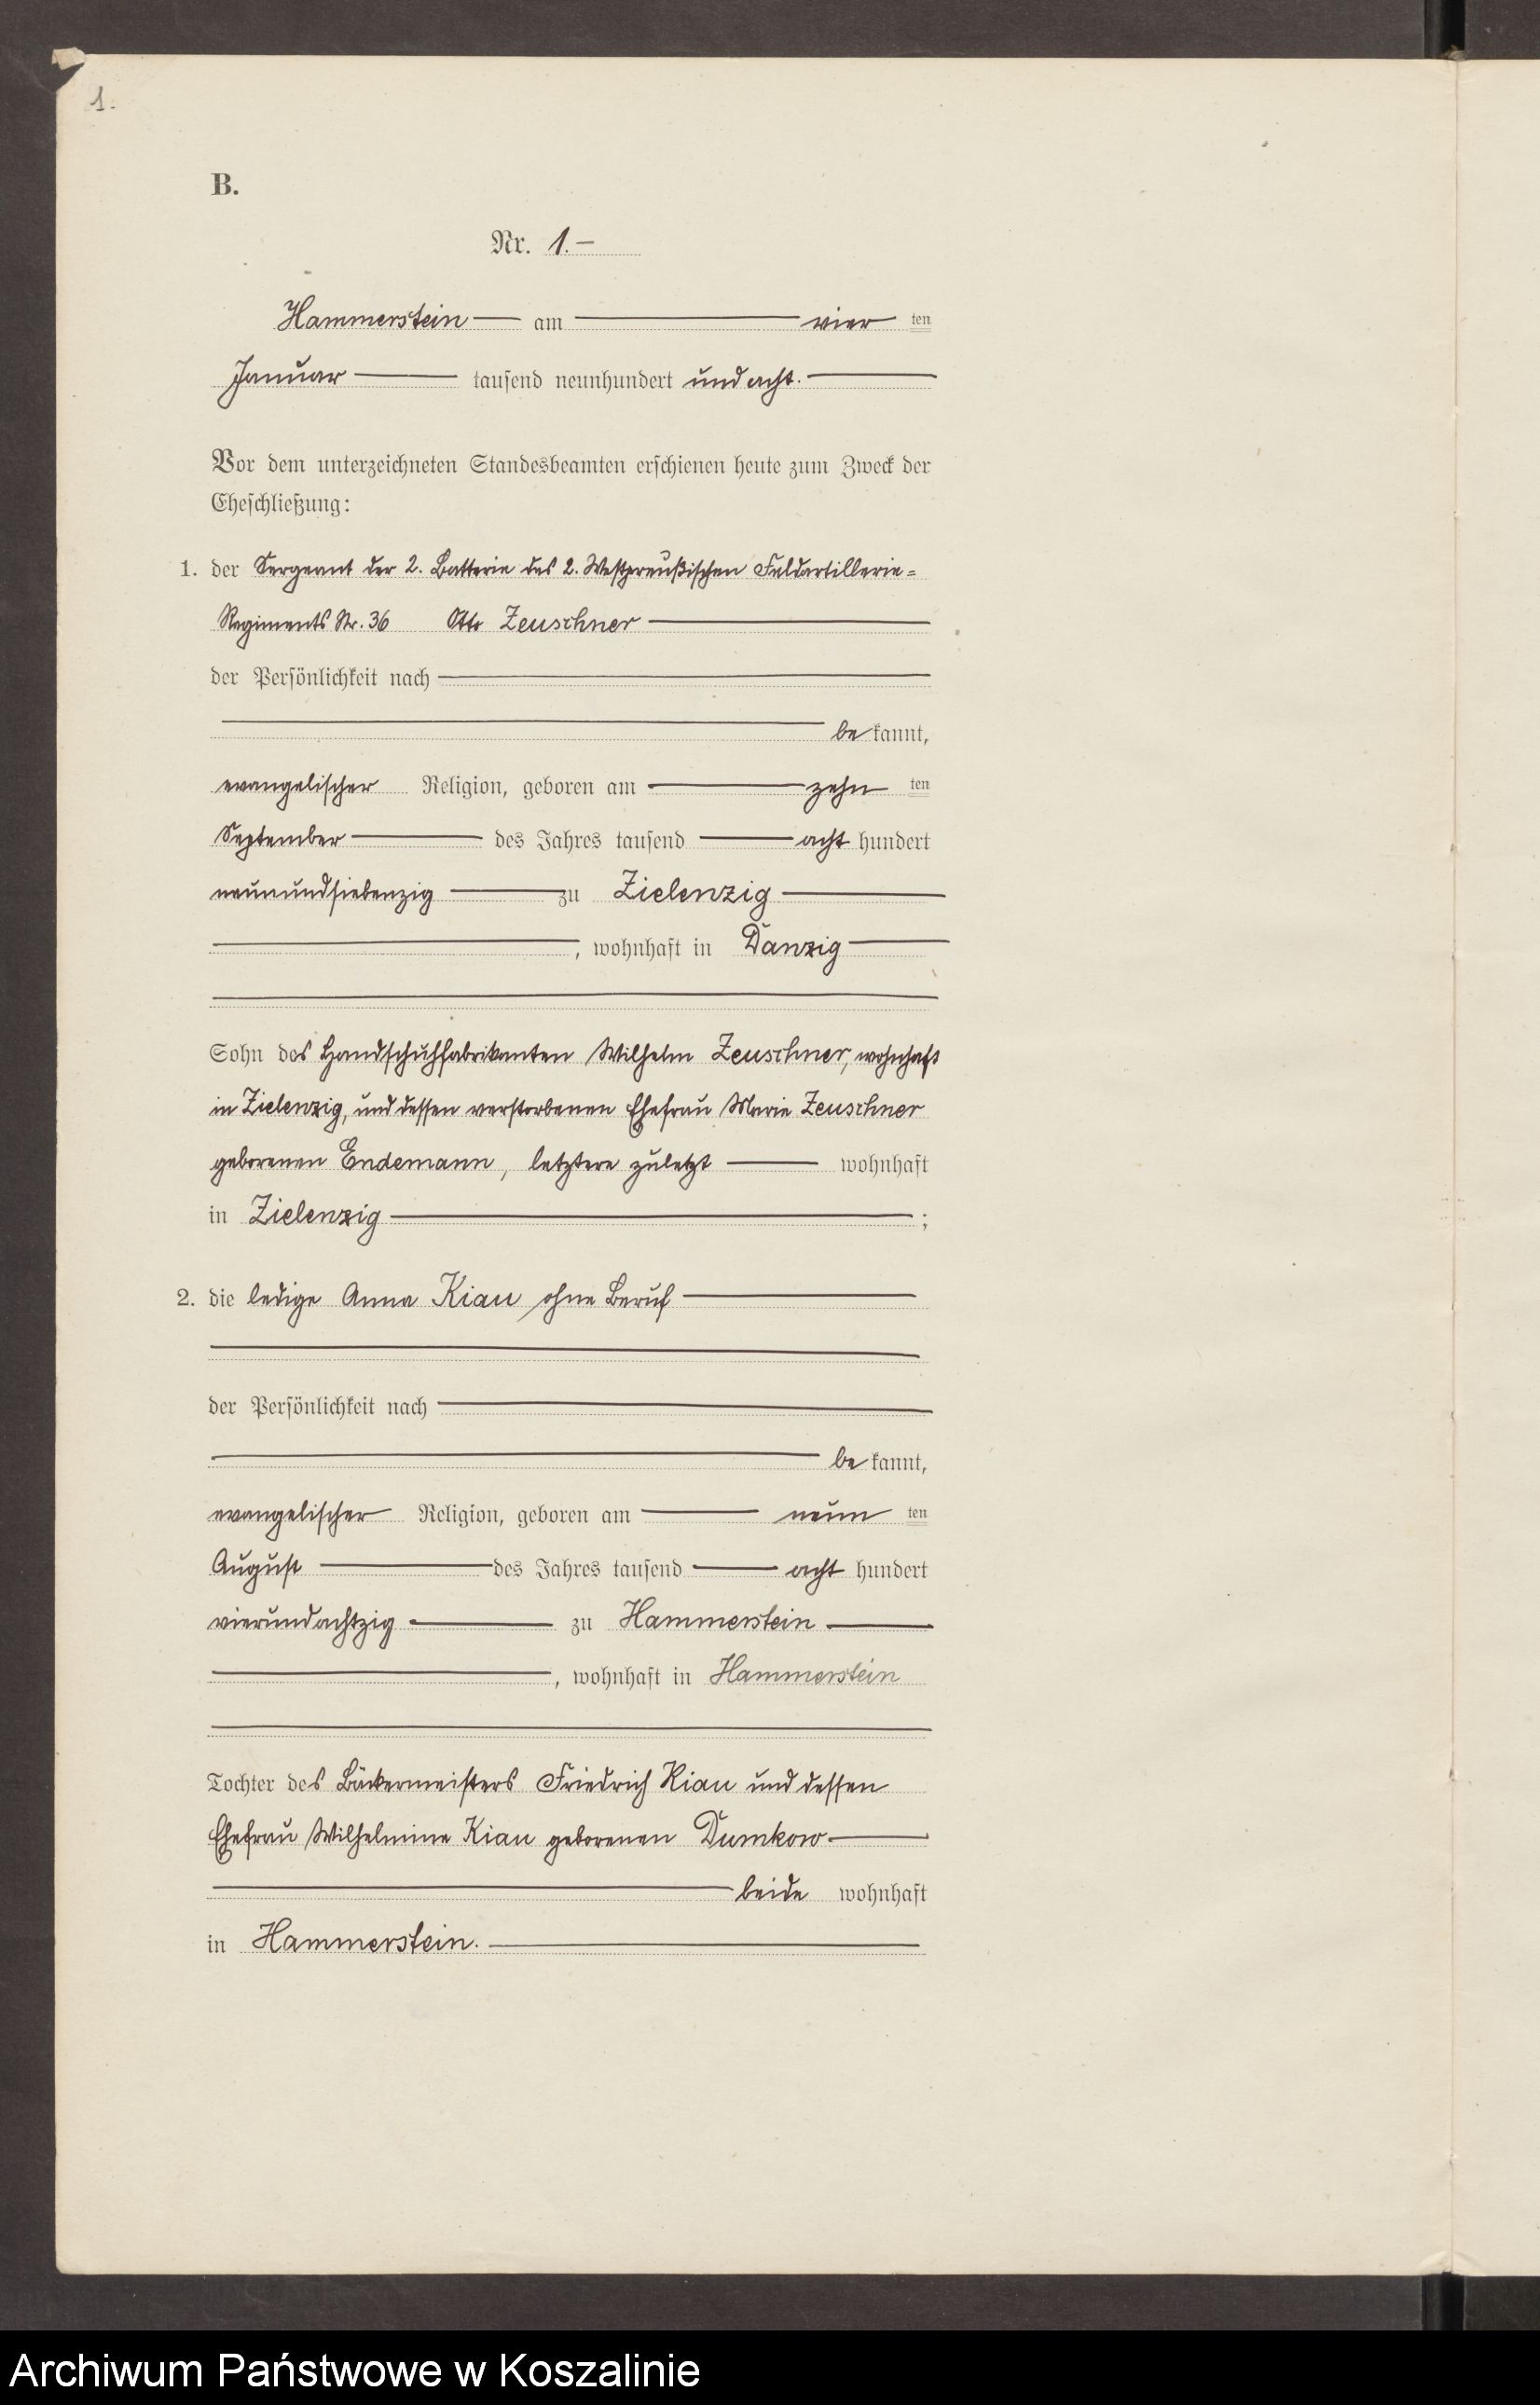 1.
B.
Nr. 1.-
Hammerstein am vier ten
Januar tausend neunhundert und acht.
Vor dem unterzeichneten Standesbeamten erschienen heute zum Zweck der
Eheschließung:
1. der Sergeant der 2. Batterie des 2. Westpreußischen Feldartillerie=
Regiments Nr. 36 Otto Zeuschner
der Persönlichkeit nach
be kannt,
evangelischer Religion, geboren am zehn ten
September des Jahres tausend acht hundert
neunundsiebenzig zu Zielenzig
, wohnhaft in Danzig
Sohn des Handschuhfabrikanten Wilhelm Zeuschner, wohnhaft
in Zielenzig, und dessen verstorbenen Ehefrau Marie Zeuschner
geborenen Endemann, letztere zuletzt wohnhaft
in Zielenzig ;
2. die ledige Anna Kiau ohne Beruf
der Persönlichkeit nach
be kannt,
evangelischer Religion, geboren am neun ten
August des Jahres tausend acht hundert
vierundachtzig zu Hammerstein
, wohnhaft in Hammerstein
Tochter des Bäckermeisters Friedrich Kiau und dessen
Ehefrau Wilhelmine Kiau geborenen Dumkow
beide wohnhaft
in Hammerstein.
Archiwum Państwowe w Koszalinie